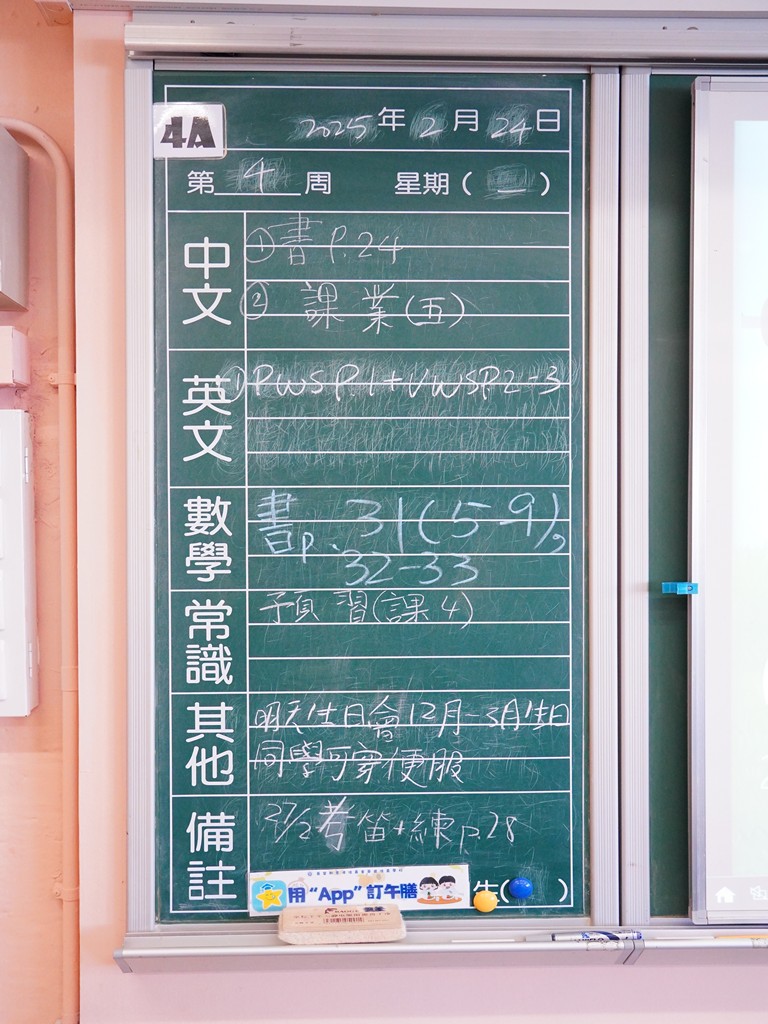 4A
2025年2月24日
第4周 星期(一)
中文
①書P.24
②課業(五)
英文
①PWS P.1+VWSP.2-3
數學
書p.31(5-9),
32-33
常識
預習(課4)
其他
明天生日會12月-3月生日
同學可穿便服
備註
27/2考笛+練p.28
用“App”訂午膳
生( )